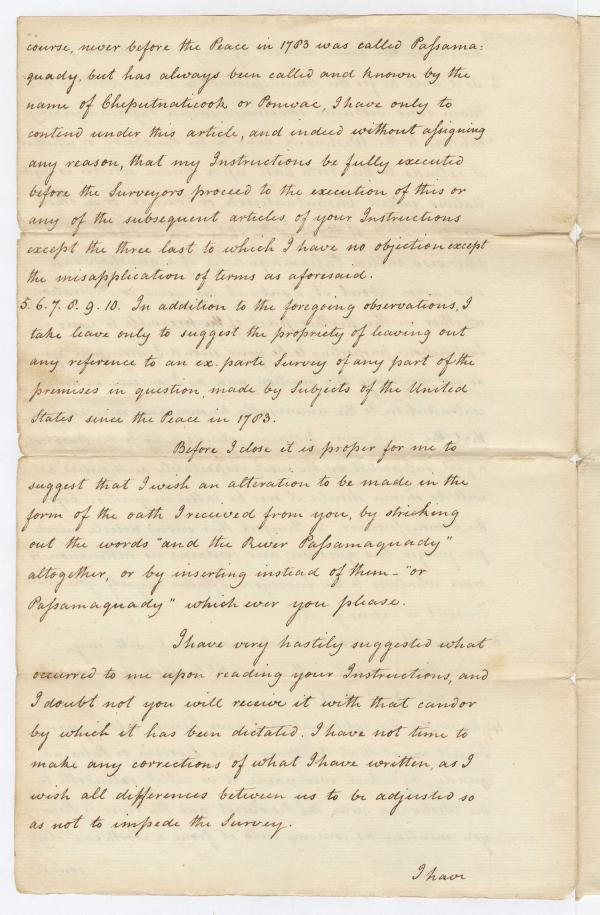 course, never before the Peace in 1783 was called Paſsama=
quady, but has always been called and known by the
name of Cheputnaticook or Ponwac, I have only to
contend under this article, and indeed without aſsigning
any reason, that my Instructions be fully executed
before the Surveyors proceed to the execution of this or
any of the subsequent articles of your Instructions
except the three last to which I have no objection except
the misapplication of terms as aforesaid.
5. 6. 7. 8. 9. 10. In addition to the foregoing observations, I
take leave only to suggest the propriety of leaving out
any reference to an ex-parte Survey of any part of the
premises in question, made by Subjects of the United
States since the Peace in 1783.
Before I close it is proper for me to
suggest that I wish an alteration to be made in the
form of the oath I received from you, by stricking
out the words "and the River Paſsamaquady"
altogether, or by inserting instead of them - "or
Paſsamaquady" which ever you please.
I have very hastily suggested what
occurred to me upon reading your Instructions, and
I doubt not you will receive it with that candor
by which it has been dictated. I have not time to
make any corrections of what I have written, as I
wish all differences between us to be adjusted so
as not to impede the Survey.
I have